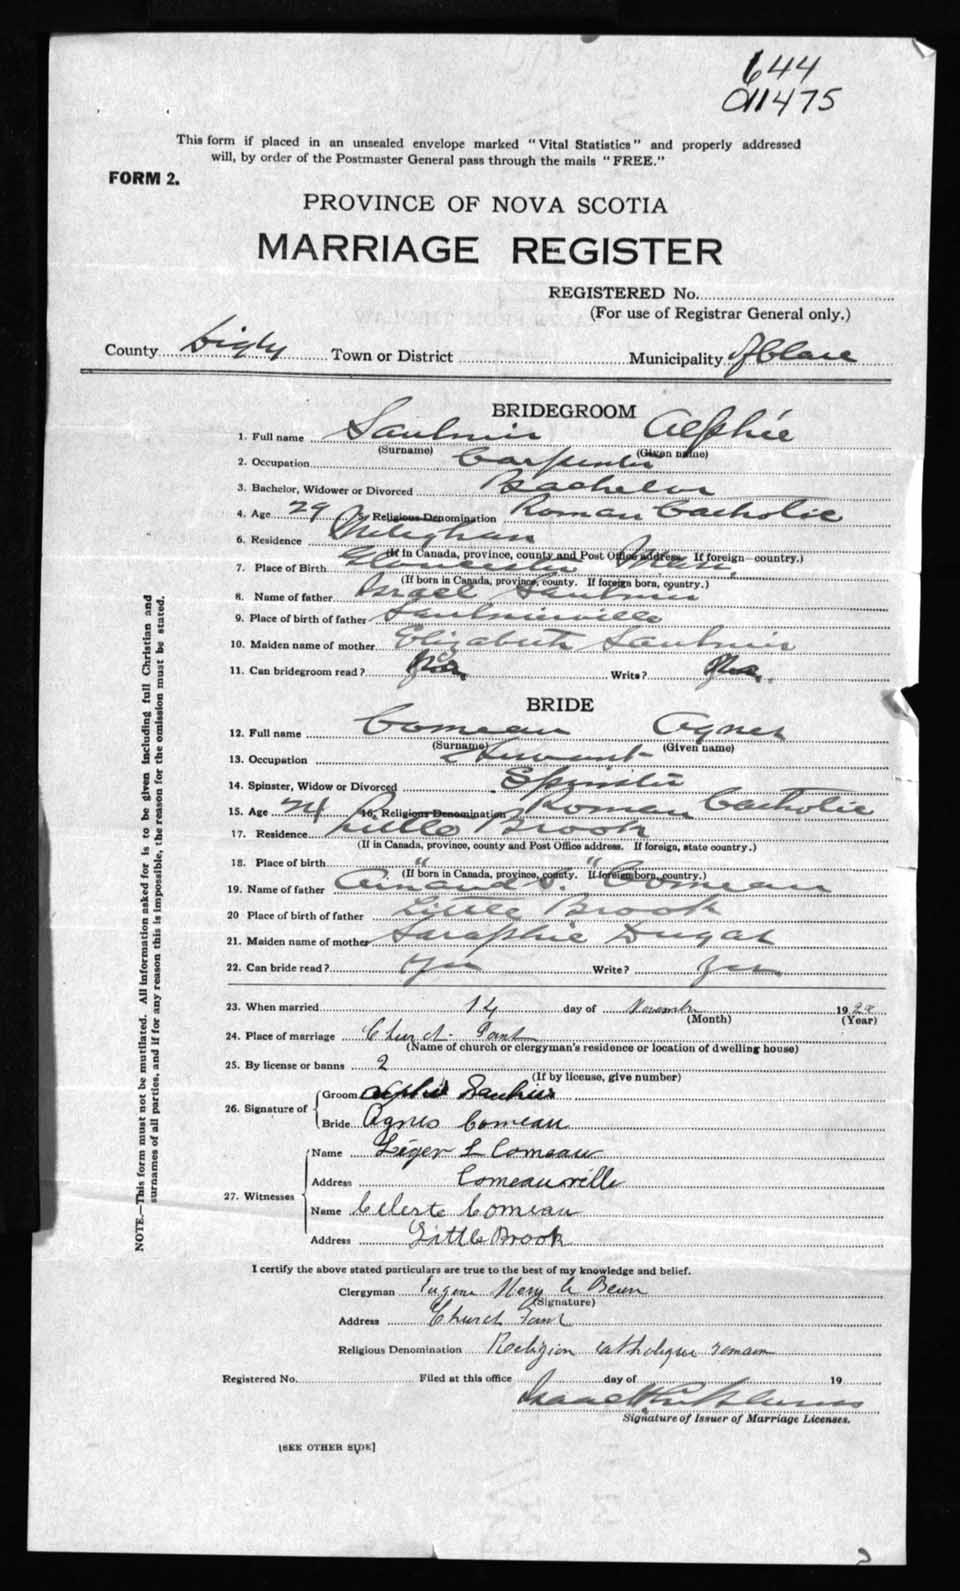 644
011475
This form if placed in an unsealed envelope marked "Vital Statistics" and properly addressed
will, by order of the Postmaster General pass through the mails "FREE."
FORM 2.
PROVINCE OF NOVA SCOTIA
MARRIAGE REGISTER
REGISTERED No.
(For use of Registrar General only.)
County Digby Town or District Municipality of Clare
BRIDEGROOM
1. Full name Saulnier Alphie
(Surname) (Given name)
2. Occupation Carpenter
3. Bachelor, Widower or Divorced Bachelor
4. Age 29 5. Religious Denomination Roman Catholic
6. Residence Meteghan
(If in Canada, province, county and Post Office address. If foreign country.)
7. Place of Birth Gloucester Mass.
(If born in Canada, province, county. If foreign born, country.)
8. Name of father Israel Saulnier
9. Place of birth of father Saulnierville
10. Maiden name of mother Elizabeth Saulnier
11. Can bridegroom read? Yes. Write? Yes.
BRIDE
12. Full name Comeau Agnes
(Surname) (Given name)
13. Occupation Servant
14. Spinster, Widow or Divorced Spinster
15. Age 24 16. Religious Denomination Roman Catholic
17. Residence Little Brook
(If in Canada, province, county and Post Office address. If foreign, state country.)
18. Place of birth " "
(If born in Canada, province, county. If foreign born, country.)
19. Name of father Amand S. Comeau
20 Place of birth of father Little Brook
21. Maiden name of mother Saraphie Dugas
22. Can bride read? Yes Write? Yes
23. When married 14 day of November 19
(Month) (Year)
24. Place of marriage Church Point
(Name of church or clergyman's residence or location of dwelling house)
25. By license or banns 2
(If by license, give number)
26. Signature of Groom Alphie Saulnier
Bride Agnes Comeau
27. Witnesses Name Léger L Comeau
Address Comeauville
Name Celeste Comeau
Address Little Brook
I certify the above stated particulars are true to the best of my knowledge and belief.
Clergyman
(Signature)
Address Church Point
Religious Denomination Religion catholique romain
Registered No. Filed at this office day of 19
Signature of Issuer of Marriage Licenses.
[SEE OTHER SIDE]
NOTE.—This form must not be mutilated. All information asked for is to be given including full Christian and
surnames of all parties, and if for any reason this is impossible, the reason for the omission must be stated.